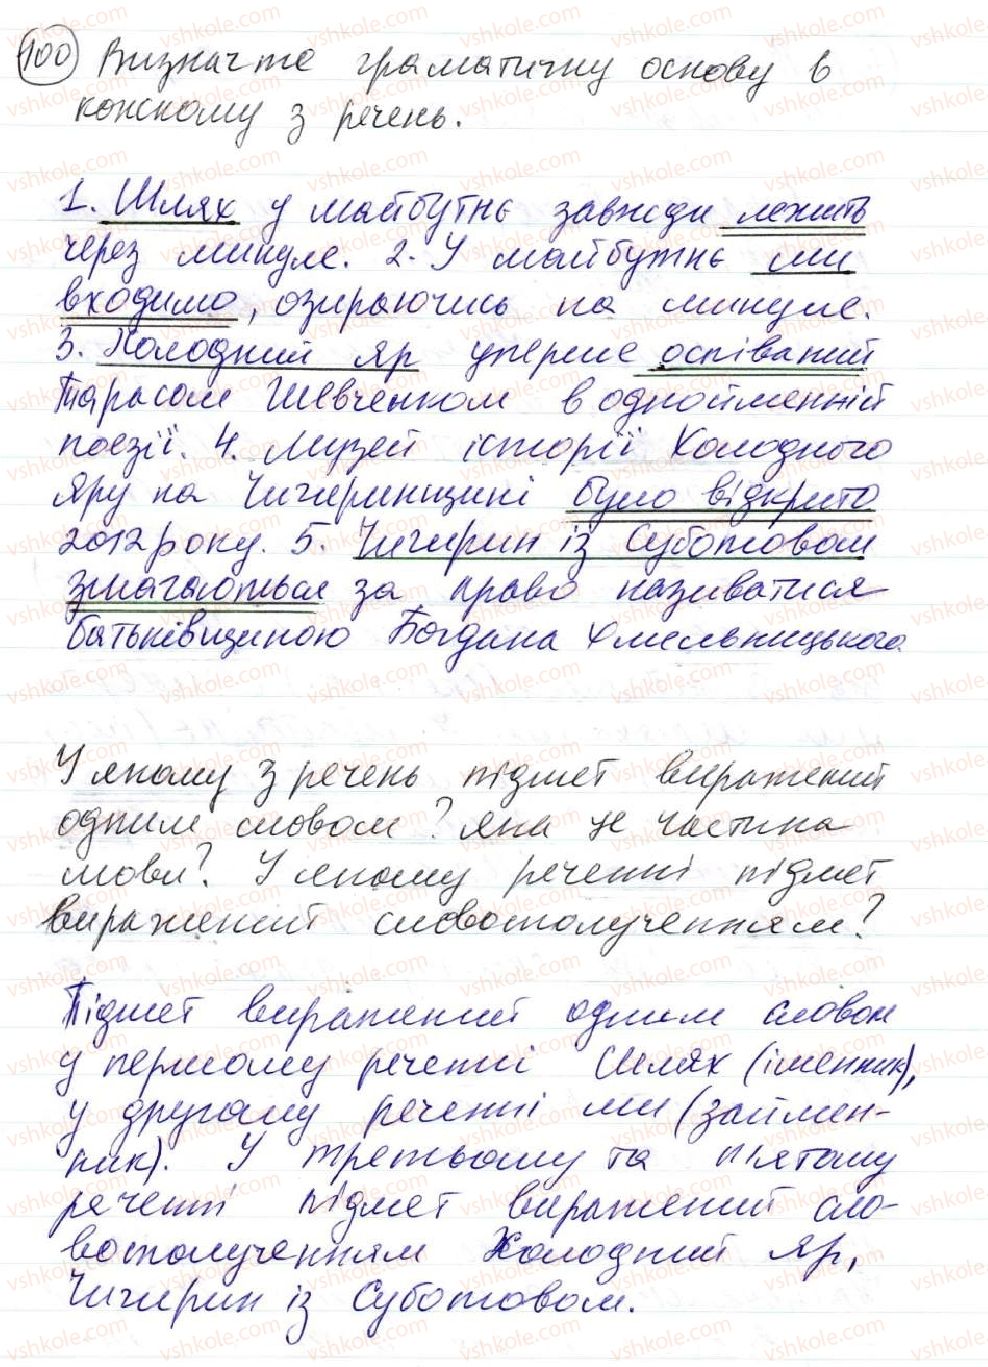 100 Визначте граматичну основу в
кожному з речень.
1. Шлях у майбутнє завжди лежить
через минуле. 2. У майбутнє ми
входимо, озираючись на минуле.
3. Холодний Яр уперше оспіваний
Тарасом Шевченком в однойменній
поезії. 4. Музей історії Холодного
Яру на Чигиринщині було відкрито
2012 року. 5. Чигирин із Суботовом
змагаються за право називатися
батьківщиною Богдана Хмельницького.
У якому з речень підмет виражений
одним словом? Яка це частина
мови? У якому реченні підмет
виражений словосполученням?
Підмет виражений одним словом
у першому реченні Шлях (іменник),
у другому реченні ми (займен-
ник). У третьому та п'ятому
реченні підмет виражений сло-
восполученням Холодний Яр,
Чигирин із Суботовом.
vshkole.com